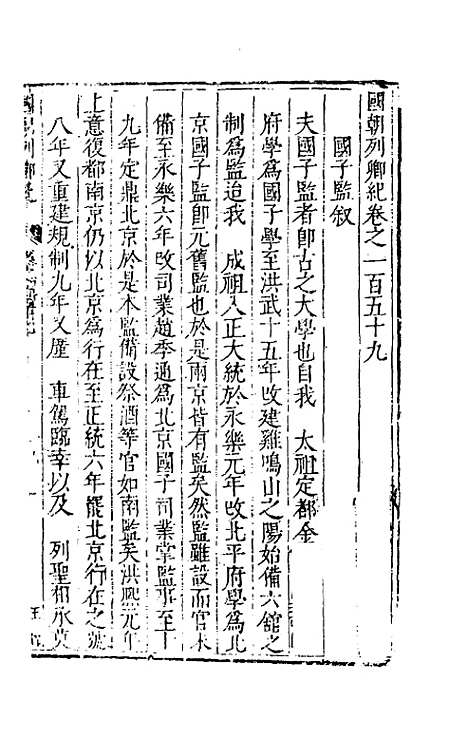 國朝列卿紀卷之一百五十九
國子監叙
夫國子監者即古之大學也自我　太祖定都金
府學為國子學至洪武十五年改建雞鳴山之陽始備六舘之
制為監迨我　成祖入正大統於永樂元年改北平府學為北
京國子監即元舊監也於是兩京皆有監矣然監雖設而官未
備至永樂六年改司業趙季通為北京國子司業掌監事至十
九年定鼎北京於是本監備設祭酒等官如南監矣洪熙元年
上意復都南京仍以北京為行在至正統六年罷北京行在之號
八年又重建規制九年又廑　車駕臨幸以及　列聖相承莫
國朝列卿紀